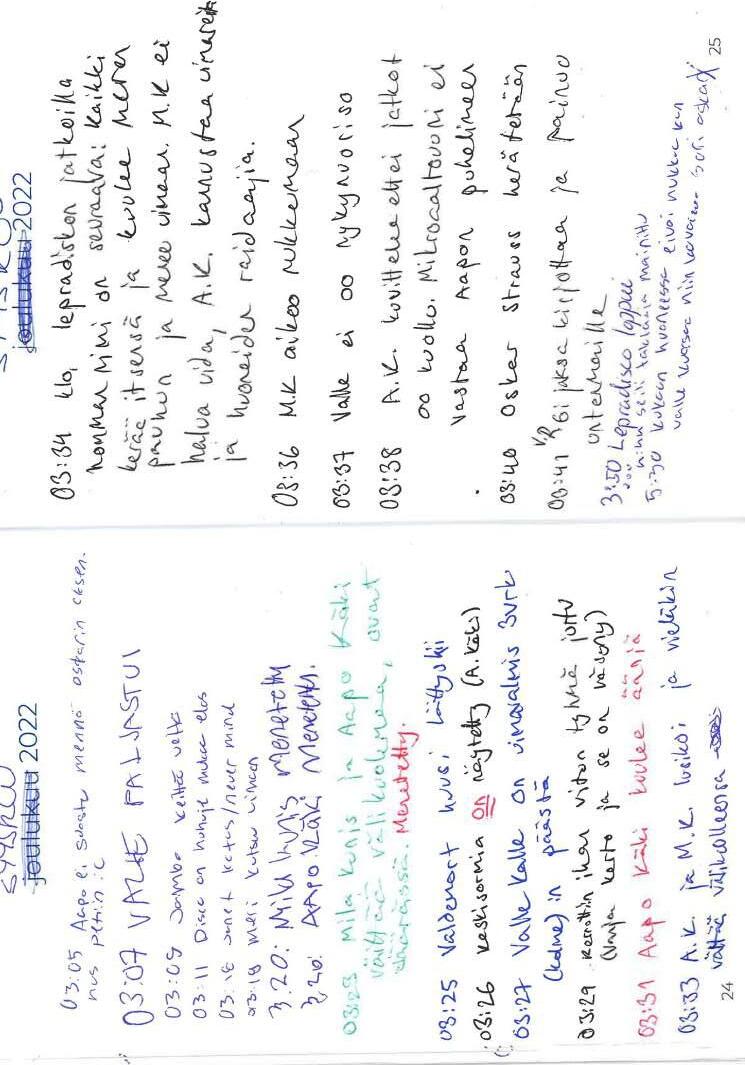 SYYSKUU
joulukuu 2022
03:05 Aapo ei suostu mennä ostarin eksen.
nus petiin :C
03:07 VALHE PALJASTUI
03:09 Jaymbo keittä vettä
03:11 Disco on huhuje mukaa elos
03:18 sanet ketus/never mind
03:18 meri kutsu uimaan
3.20: Mild hynis Menetetty
3.20. Aapo Käki Menetetty.
03:23 Mila Kunis ja Aapo Käki
väittää välikuolemaa, ovat
Menetetty.
03:25 Valdemort huusi
03:26 keskisormia on näytetty (A. Käki)
03:27 Valle Kalle on uimavalmis
(kolme) in päästä
03:29 kerrottiin ihan vitun tyhmä juttu
(Vanja kerto ja se on väsyny)
03:31 Aapo Käki kuulee ääniä
03:33 A.K. ja M.K. ja vieläkin
väittää välikolleensa
24
SYYSKUU
joulukuu 2022
03:34 klo, lepradiskon jatkoilla
homman nimi on seuraava: Kaikki
kerää itsensä ja kuulee meren
pauhun ja menee uimaan. M.K ei
halua uida, A.K. kannustaa uimareita
ja huoneiden raidaajia.
03:36 M.K aikoo nukkemaan
03:37 Valle ei oo nykynuoriso
03:38 A.K. kuvittelee ettei jatkot
oo kuollu. Mikroaaltouuni ei
vastaa Aapon puhelimeen
03:40 Oskar Strauss herätetään
03:41 V.R ei jaksa kirjottaa ja painuu
untenmaille
3:50 Lepradisco loppuu
niinku seki täälläkin mainittu
5:30 kukaan huoneessa ei voi nukkua kun
Valle kuorsaa niin kovaa
25